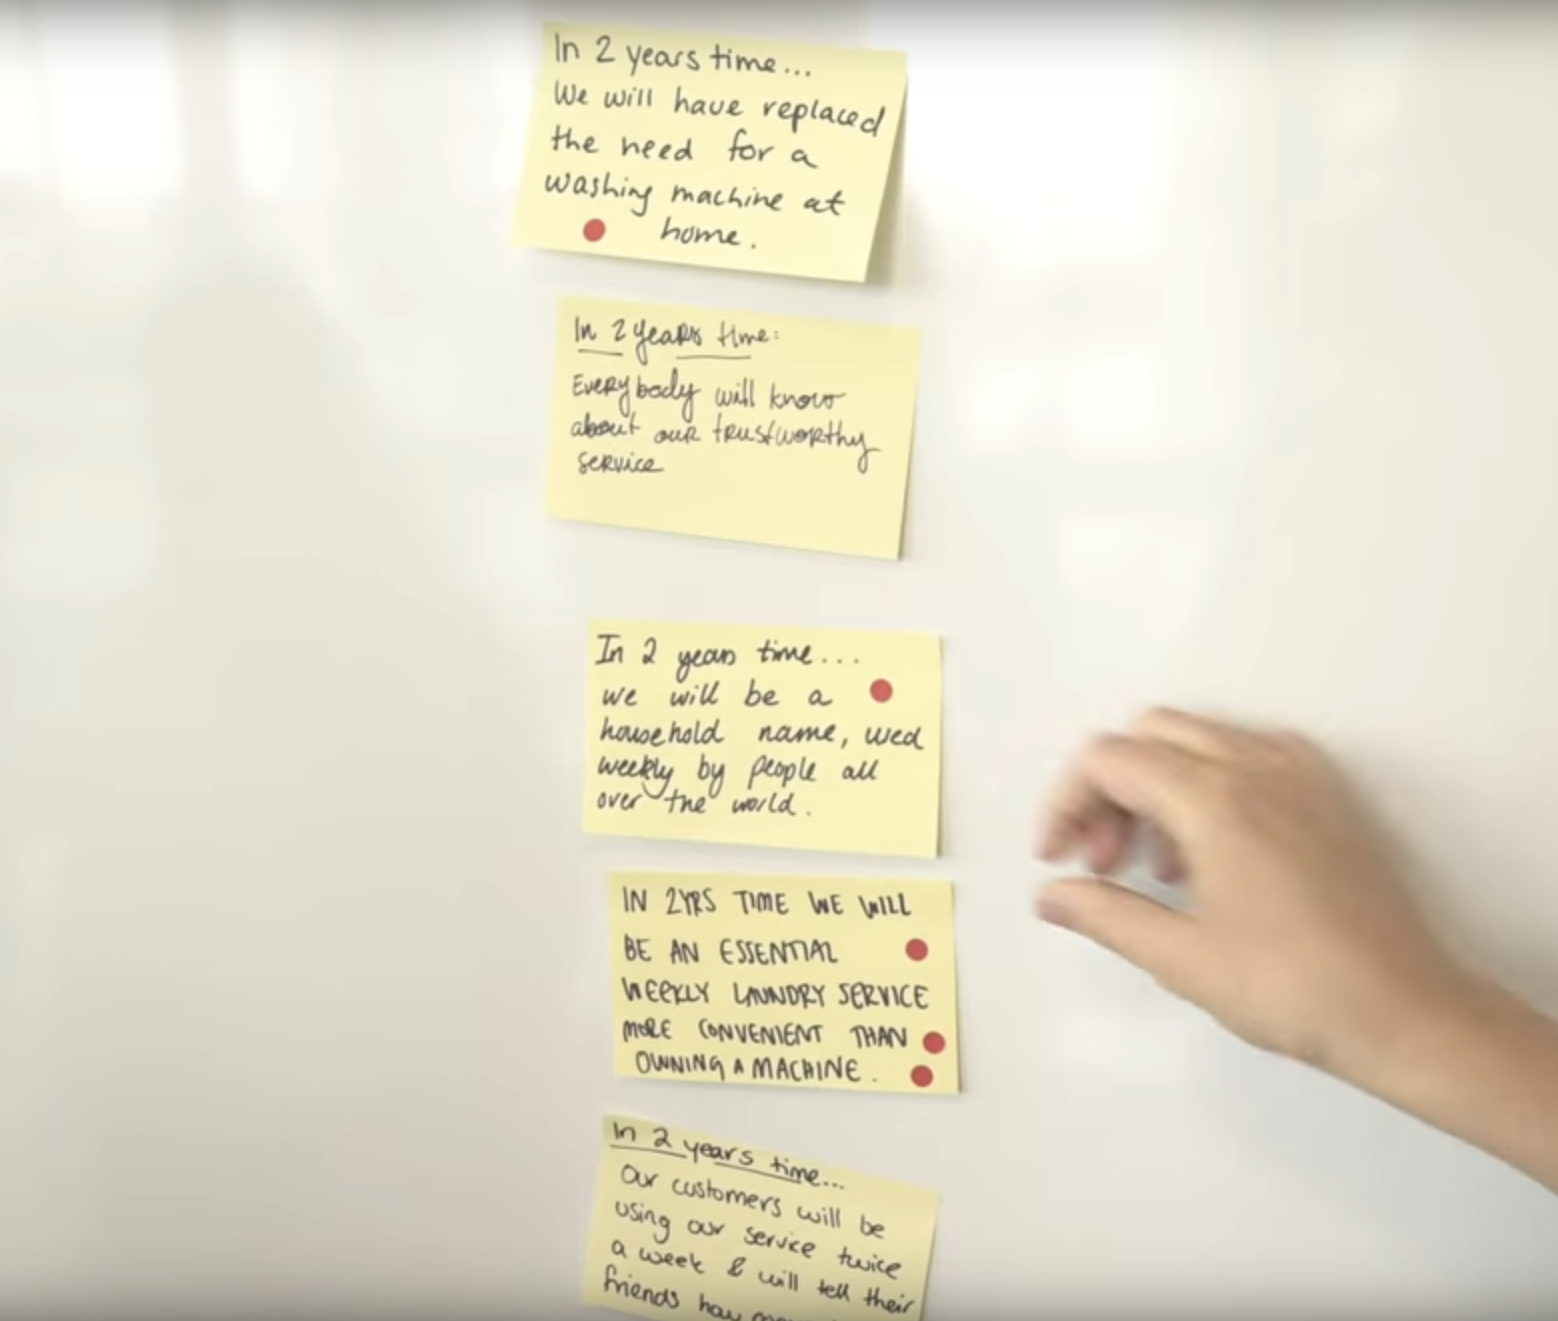 In 2 years time...
We will have replaced
the need for a
washing machine at
home.
In 2 years time:
Everybody will know
about our trustworthy
service
In 2 years time...
we will be a
household name, used
weekly by people all
over the world.
IN 2YRS TIME WE WILL
BE AN ESSENTIAL
WEEKLY LAUNDRY SERVICE
MORE CONVENIENT THAN
OWNING A MACHINE.
In 2 years time...
Our customers will be
using our service twice
a week & will tell their
friends how